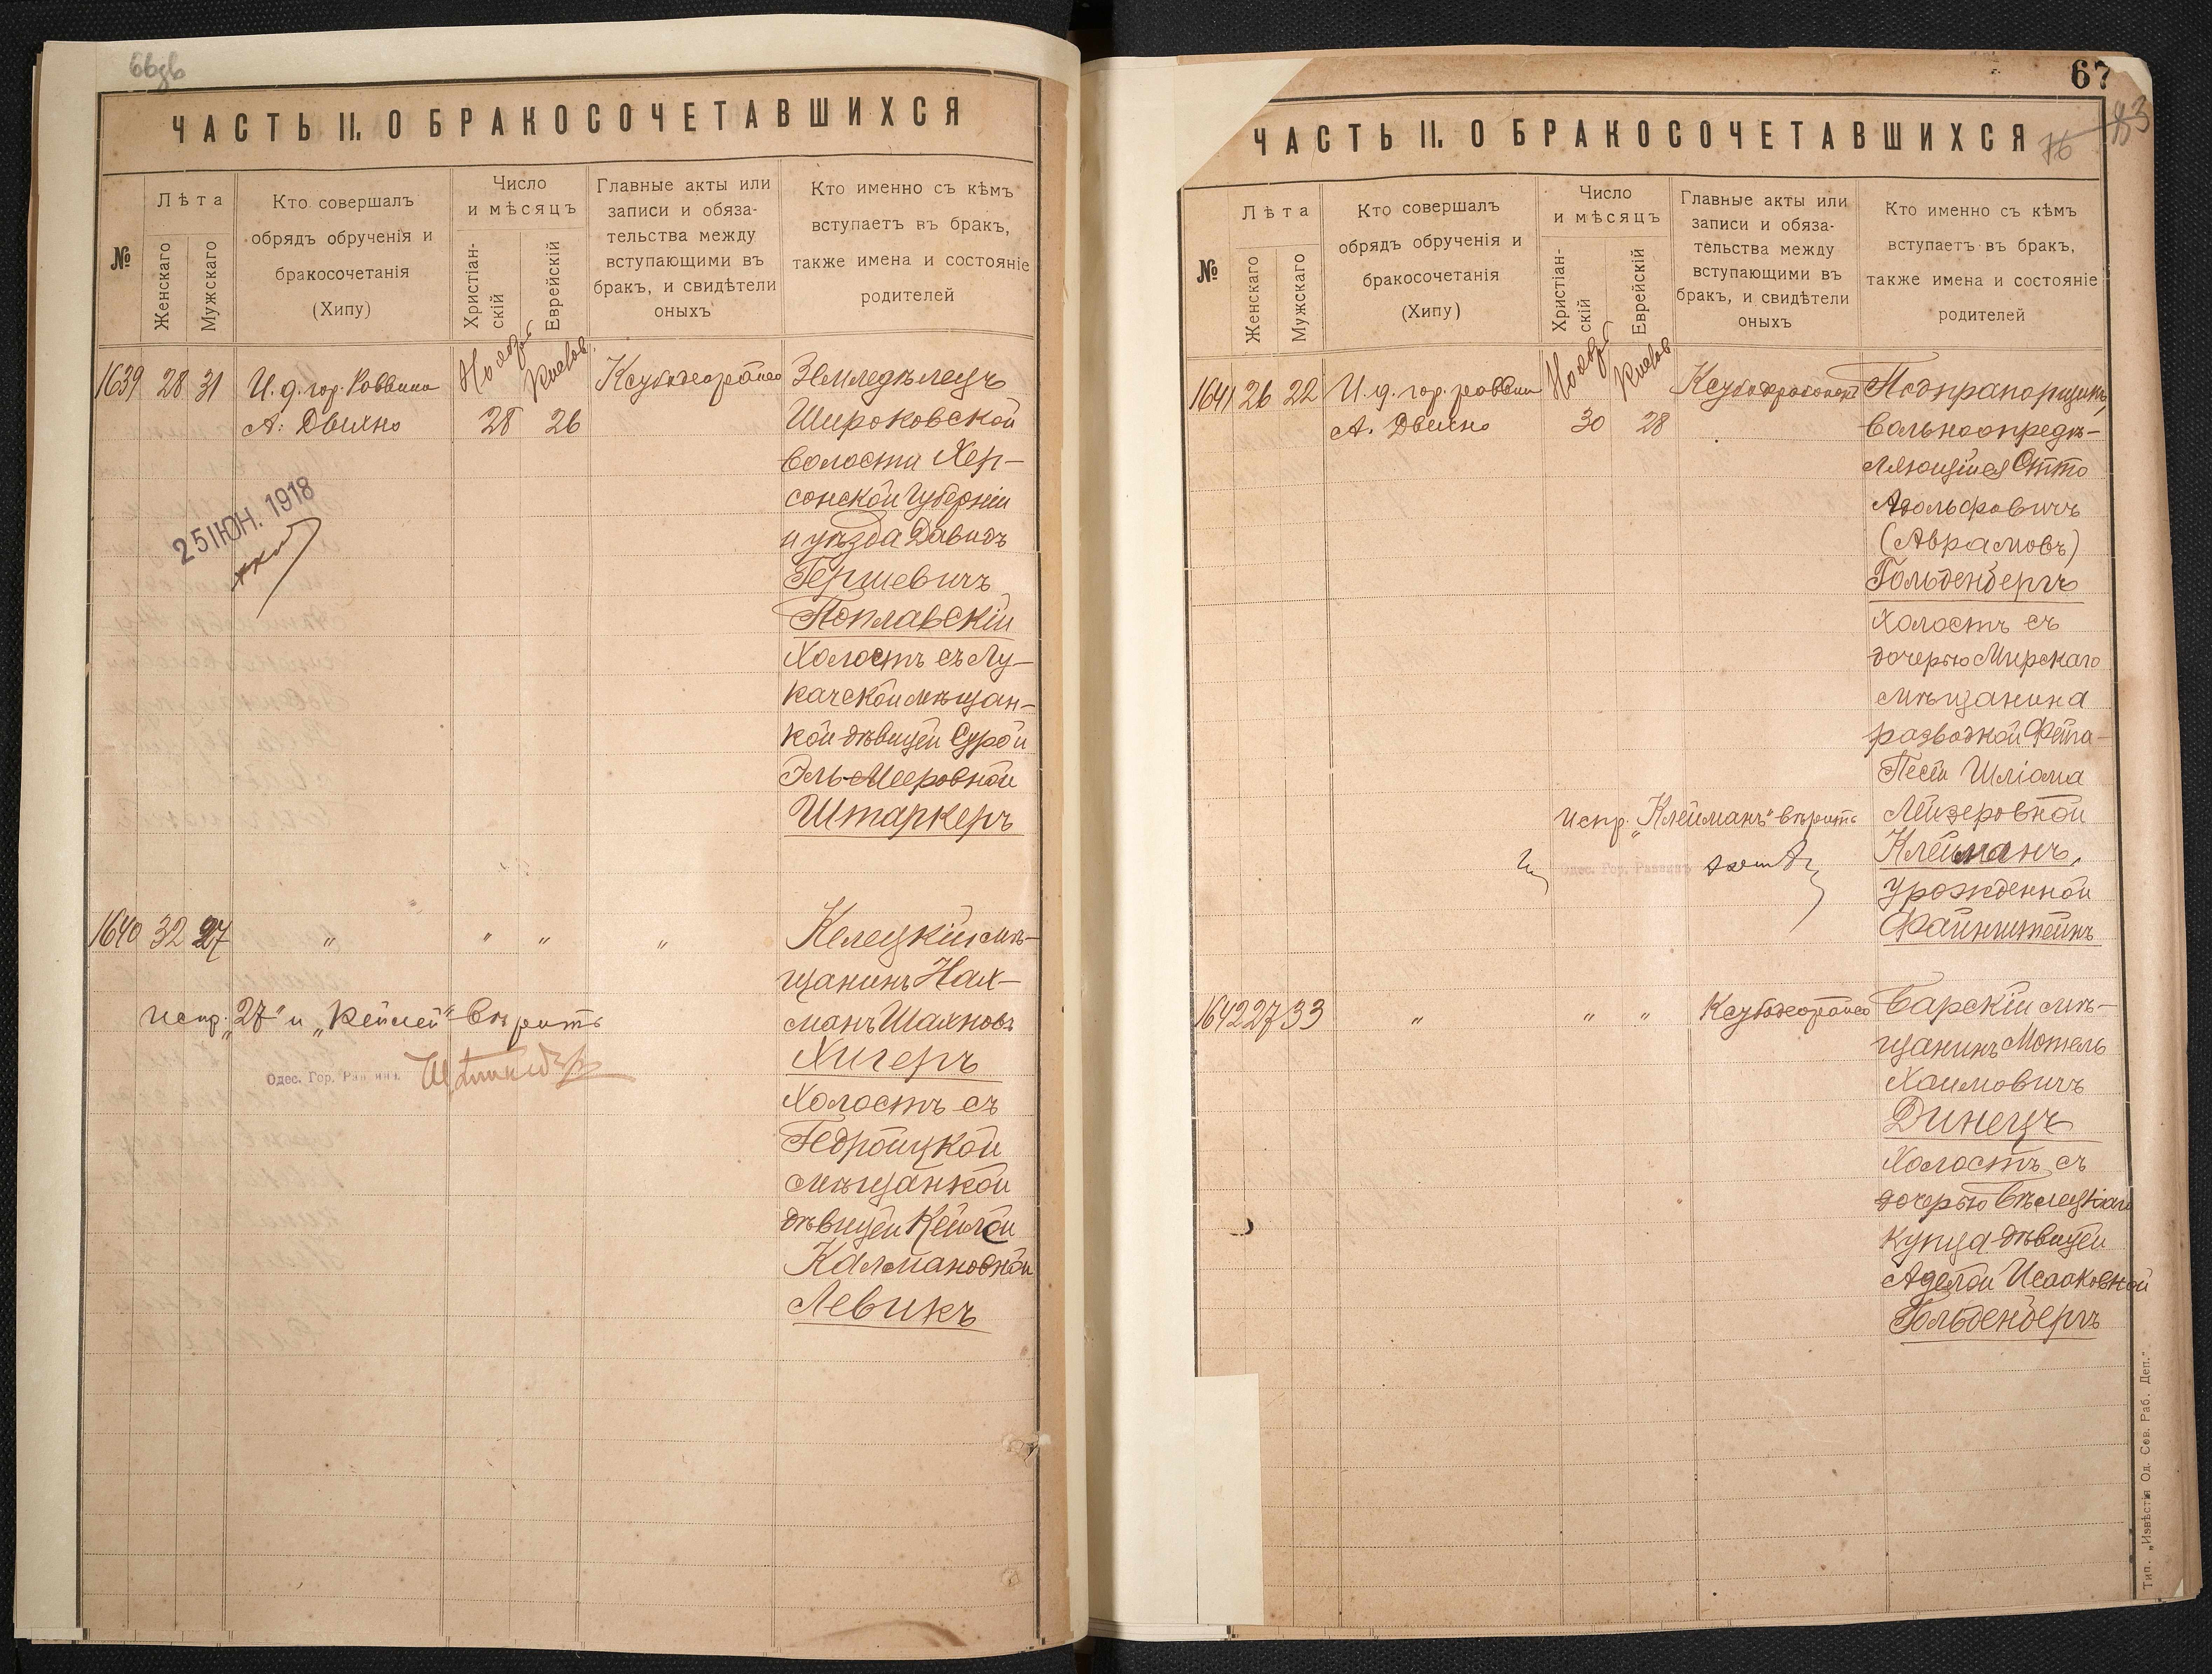 ЧАСТЬ II. О БРАКОСОЧЕТАВШИХСЯ
№
Лѣта
Женскаго
Мужскаго
Кто совершалъ
обрядъ обрученія и
бракосочетанія
(Хипу)
Число
и мѣсяцъ
Христіан-
скій
Еврейскій
Главные акты или
записи и обяза-
тельства между
вступающими въ
бракъ, и свидѣтели
оныхъ
Кто именно съ кѣмъ
вступаетъ въ бракъ,
также имена и состояніе
родителей
1639 28 31
И. д. гор. Раввина
А. Двилно
Нояб.
28
Кислев.
26
Земледѣлецъ
Широковской
волости Хер-
сонской Губерніи
и уѣзда Давидъ
Гершевичъ
Поплавскій
Холостъ съ Лу-
качской мѣщан-
кой дѣвицей Сурой
Эль-Мееровной
Штаркеръ
25 ІЮН. 1918
1640 32 27 " " " "
Келецкій мѣ-
щанинъ Нах-
манъ Шахновъ
Хигеръ
Холостъ съ
Гедройцкой
мѣщанкой
дѣвицей Кейлей
Калмановной
Левикъ
испр. „27" и „Кейлей" вѣрить
Одес. Гор. Раввинъ
67
76
83
ЧАСТЬ II. О БРАКОСОЧЕТАВШИХСЯ
№
Лѣта
Женскаго
Мужскаго
Кто совершалъ
обрядъ обрученія и
бракосочетанія
(Хипу)
Число
и мѣсяцъ
Христіан-
скій
Еврейскій
Главные акты или
записи и обяза-
тельства между
вступающими въ
бракъ, и свидѣтели
оныхъ
Кто именно съ кѣмъ
вступаетъ въ бракъ,
также имена и состояніе
родителей
1641 26 22
И. д. гор. раввина
А. Двилно
Нояб.
30
Кислев
28
Подпрапорщикъ,
вольноопредѣ-
ляющійся Отто
Адольфовичъ
(Абрамовъ)
Гольденбергъ
Холостъ съ
дочерью Мирскаго
мѣщанина
разводной Фейга-
Песей Шліома
Лейзеровной
Клейманъ,
урожденной
Файнштейнъ
испр. „Клейманъ" вѣрить
Одес. Гор. Раввинъ
1642 27 33 " " "
Барскій мѣ-
щанинъ Мотель
Хаимовичъ
Динецъ
Холостъ съ
дочерью Бѣлецкаго
купца дѣвицей
Аделой Исааковной
Гольденбергъ
Тип. „Извѣстія Од. Сов. Раб. Деп."